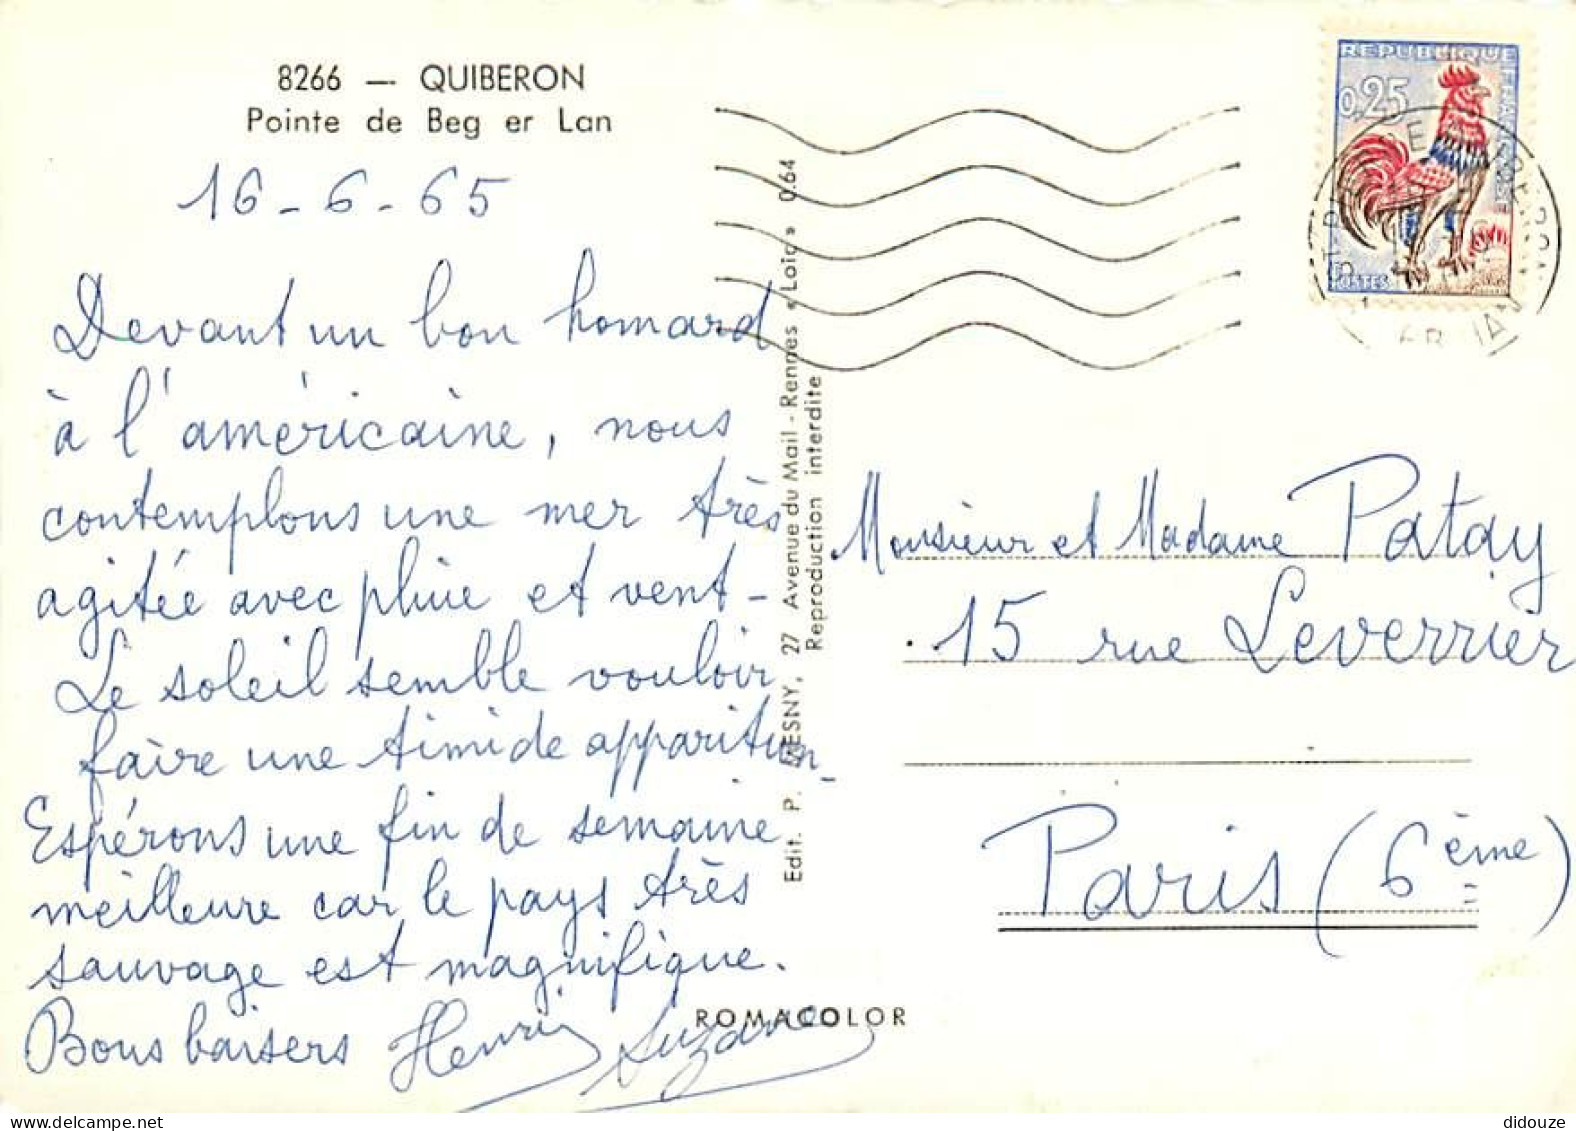 8266 — QUIBERON
Pointe de Beg er Lan
16-6-65
Devant un bon homard
à l'américaine, nous
contemplons une mer très
agitée avec pluie et vent-
Le soleil semble vouloir
faire une timide apparition-
Espérons une fin de semaine
meilleure car le pays très
sauvage est magnifique.
Bons baisers Henri Suzanne
Edit. P. MESNY, 27 Avenue du Mail - Rennes « Loïc » 0.64
Reproduction interdite
ROMACOLOR
REPUBLIQUE FRANÇAISE
0,25
POSTES
Monsieur et Madame Patay
15 rue Leverrier
Paris (6ème)
didouze